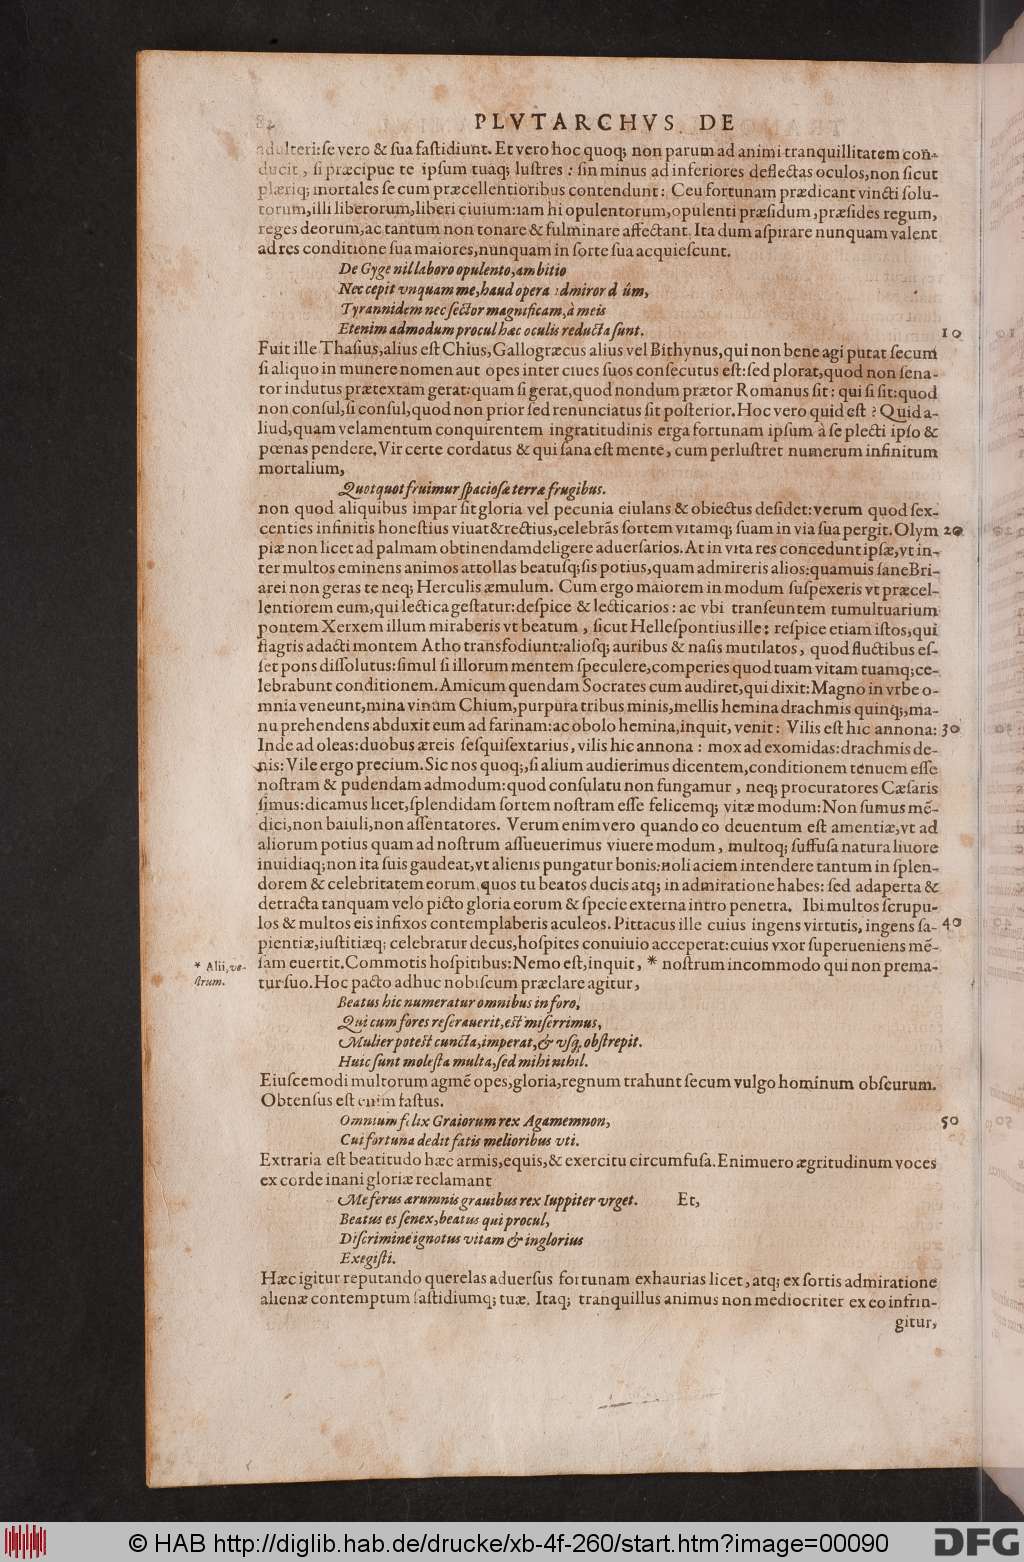 82 PLVTARCHVS DE
adulteri: se vero & sua fastidiunt. Et vero hoc quoq; non parum ad animi tranquillitatem con-
ducit, si præcipue te ipsum tuaq; lustres: sin minus ad inferiores deflectas oculos, non sicut
plæriq; mortales se cum præcellentioribus contendunt: Ceu fortunam prædicant vincti solu-
torum, illi liberorum, liberi ciuium: iam hi opulentorum, opulenti præsidum, præsides regum,
reges deorum, ac tantum non tonare & fulminare affectant. Ita dum aspirare nunquam valent
ad res conditione sua maiores, nunquam in sorte sua acquiescunt.
De Gyge nil laboro opulento, ambitio
Nec cepit vnquam me, haud opera dmiror d úm,
Tyrannidem nec sector magnificam, à meis
Etenim admodum procul hæc oculis reducta sunt. 10
Fuit ille Thasius, alius est Chius, Gallogræcus alius vel Bithynus, qui non bene agi putat secum
si aliquo in munere nomen aut opes inter ciues suos consecutus est: sed plorat, quod non sena-
tor indutus prætextam gerat: quam si gerat, quod nondum prætor Romanus sit: qui si sit: quod
non consul, si consul, quod non prior sed renunciatus sit posterior. Hoc vero quid est? Quid a-
liud, quam velamentum conquirentem ingratitudinis erga fortunam ipsum à se plecti ipso &
pœnas pendere. Vir certe cordatus & qui sana est mente, cum perlustret numerum infinitum
mortalium,
Quotquot fruimur spaciosæ terræ frugibus.
non quod aliquibus impar sit gloria vel pecunia eiulans & obiectus desidet: verum quod sex-
centies infinitis honestius viuat & rectius, celebrãs sortem vitamq; suam in via sua pergit. Olym 20
piæ non licet ad palmam obtinendam deligere aduersarios. At in vita res concedunt ipsæ, vt in-
ter multos eminens animos attollas beatusq; sis potius, quam admireris alios: quamuis sane Bri-
arei non geras te neq; Herculis æmulum. Cum ergo maiorem in modum suspexeris vt præcel-
lentiorem eum, qui lectica gestatur: despice & lecticarios: ac vbi transeuntem tumultuarium
pontem Xerxem illum miraberis vt beatum, sicut Hellespontius ille: respice etiam istos, qui
flagris adacti montem Atho transfodiunt: aliosq; auribus & nasis mutilatos, quod fluctibus es-
set pons dissolutus: simul si illorum mentem speculere, comperies quod tuam vitam tuamq; ce-
lebrabunt conditionem. Amicum quendam Socrates cum audiret, qui dixit: Magno in vrbe o-
mnia veneunt, mina vinum Chium, purpura tribus minis, mellis hemina drachmis quinq;, ma-
nu prehendens abduxit eum ad farinam: ac obolo hemina, inquit, venit: Vilis est hic annona: 30
Inde ad oleas: duobus æreis sesquisextarius, vilis hic annona: mox ad exomidas: drachmis de-
nis: Vile ergo precium. Sic nos quoq;, si alium audierimus dicentem, conditionem tenuem esse
nostram & pudendam admodum: quod consulatu non fungamur, neq; procuratores Cæsaris
simus: dicamus licet, splendidam sortem nostram esse felicemq; vitæ modum: Non sumus mẽ-
dici, non baiuli, non assentatores. Verum enim vero quando eo deuentum est amentiæ, vt ad
aliorum potius quam ad nostrum assueuerimus viuere modum, multoq; suffusa natura liuore
inuidiaq; non ita suis gaudeat, vt alienis pungatur bonis: noli aciem intendere tantum in splen-
dorem & celebritatem eorum, quos tu beatos ducis atq; in admiratione habes: sed adaperta &
detracta tanquam velo picto gloria eorum & specie externa intro penetra. Ibi multos scrupu-
los & multos eis infixos contemplaberis aculeos. Pittacus ille cuius ingens virtutis, ingens sa- 40
pientiæ, iustitiæq; celebratur decus, hospites conuiuio acceperat: cuius vxor superueniens mẽ-
sam euertit. Commotis hospitibus: Nemo est, inquit, * nostrum incommodo qui non prema-
tur suo. Hoc pacto adhuc nobiscum præclare agitur,
* Alii, ve-
strum.
Beatus hic numeratur omnibus in foro,
Qui cum fores reserauerit, est miserrimus,
Mulier potest cuncta, imperat, & vsq, obstrepit.
Huic sunt molesta multa, sed mihi nihil.
Eiuscemodi multorum agmẽ opes, gloria, regnum trahunt secum vulgo hominum obscurum.
Obtensus est enim fastus.
Omnium felix Graiorum rex Agamemnon, 50
Cui fortuna dedit fatis melioribus vti.
Extraria est beatitudo hæc armis, equis, & exercitu circumfusa. Enimuero ægritudinum voces
ex corde inani gloriæ reclamant
Me ferus ærumnis grauibus rex Iuppiter vrget. Et,
Beatus es senex, beatus qui procul,
Discrimine ignotus vitam & inglorius
Exegisti.
Hæc igitur reputando querelas aduersus fortunam exhaurias licet, atq; ex sortis admiratione
alienæ contemptum fastidiumq; tuæ. Itaq; tranquillus animus non mediocriter ex eo infrin-
gitur,
© HAB http://diglib.hab.de/drucke/xb-4f-260/start.htm?image=00090
DFG